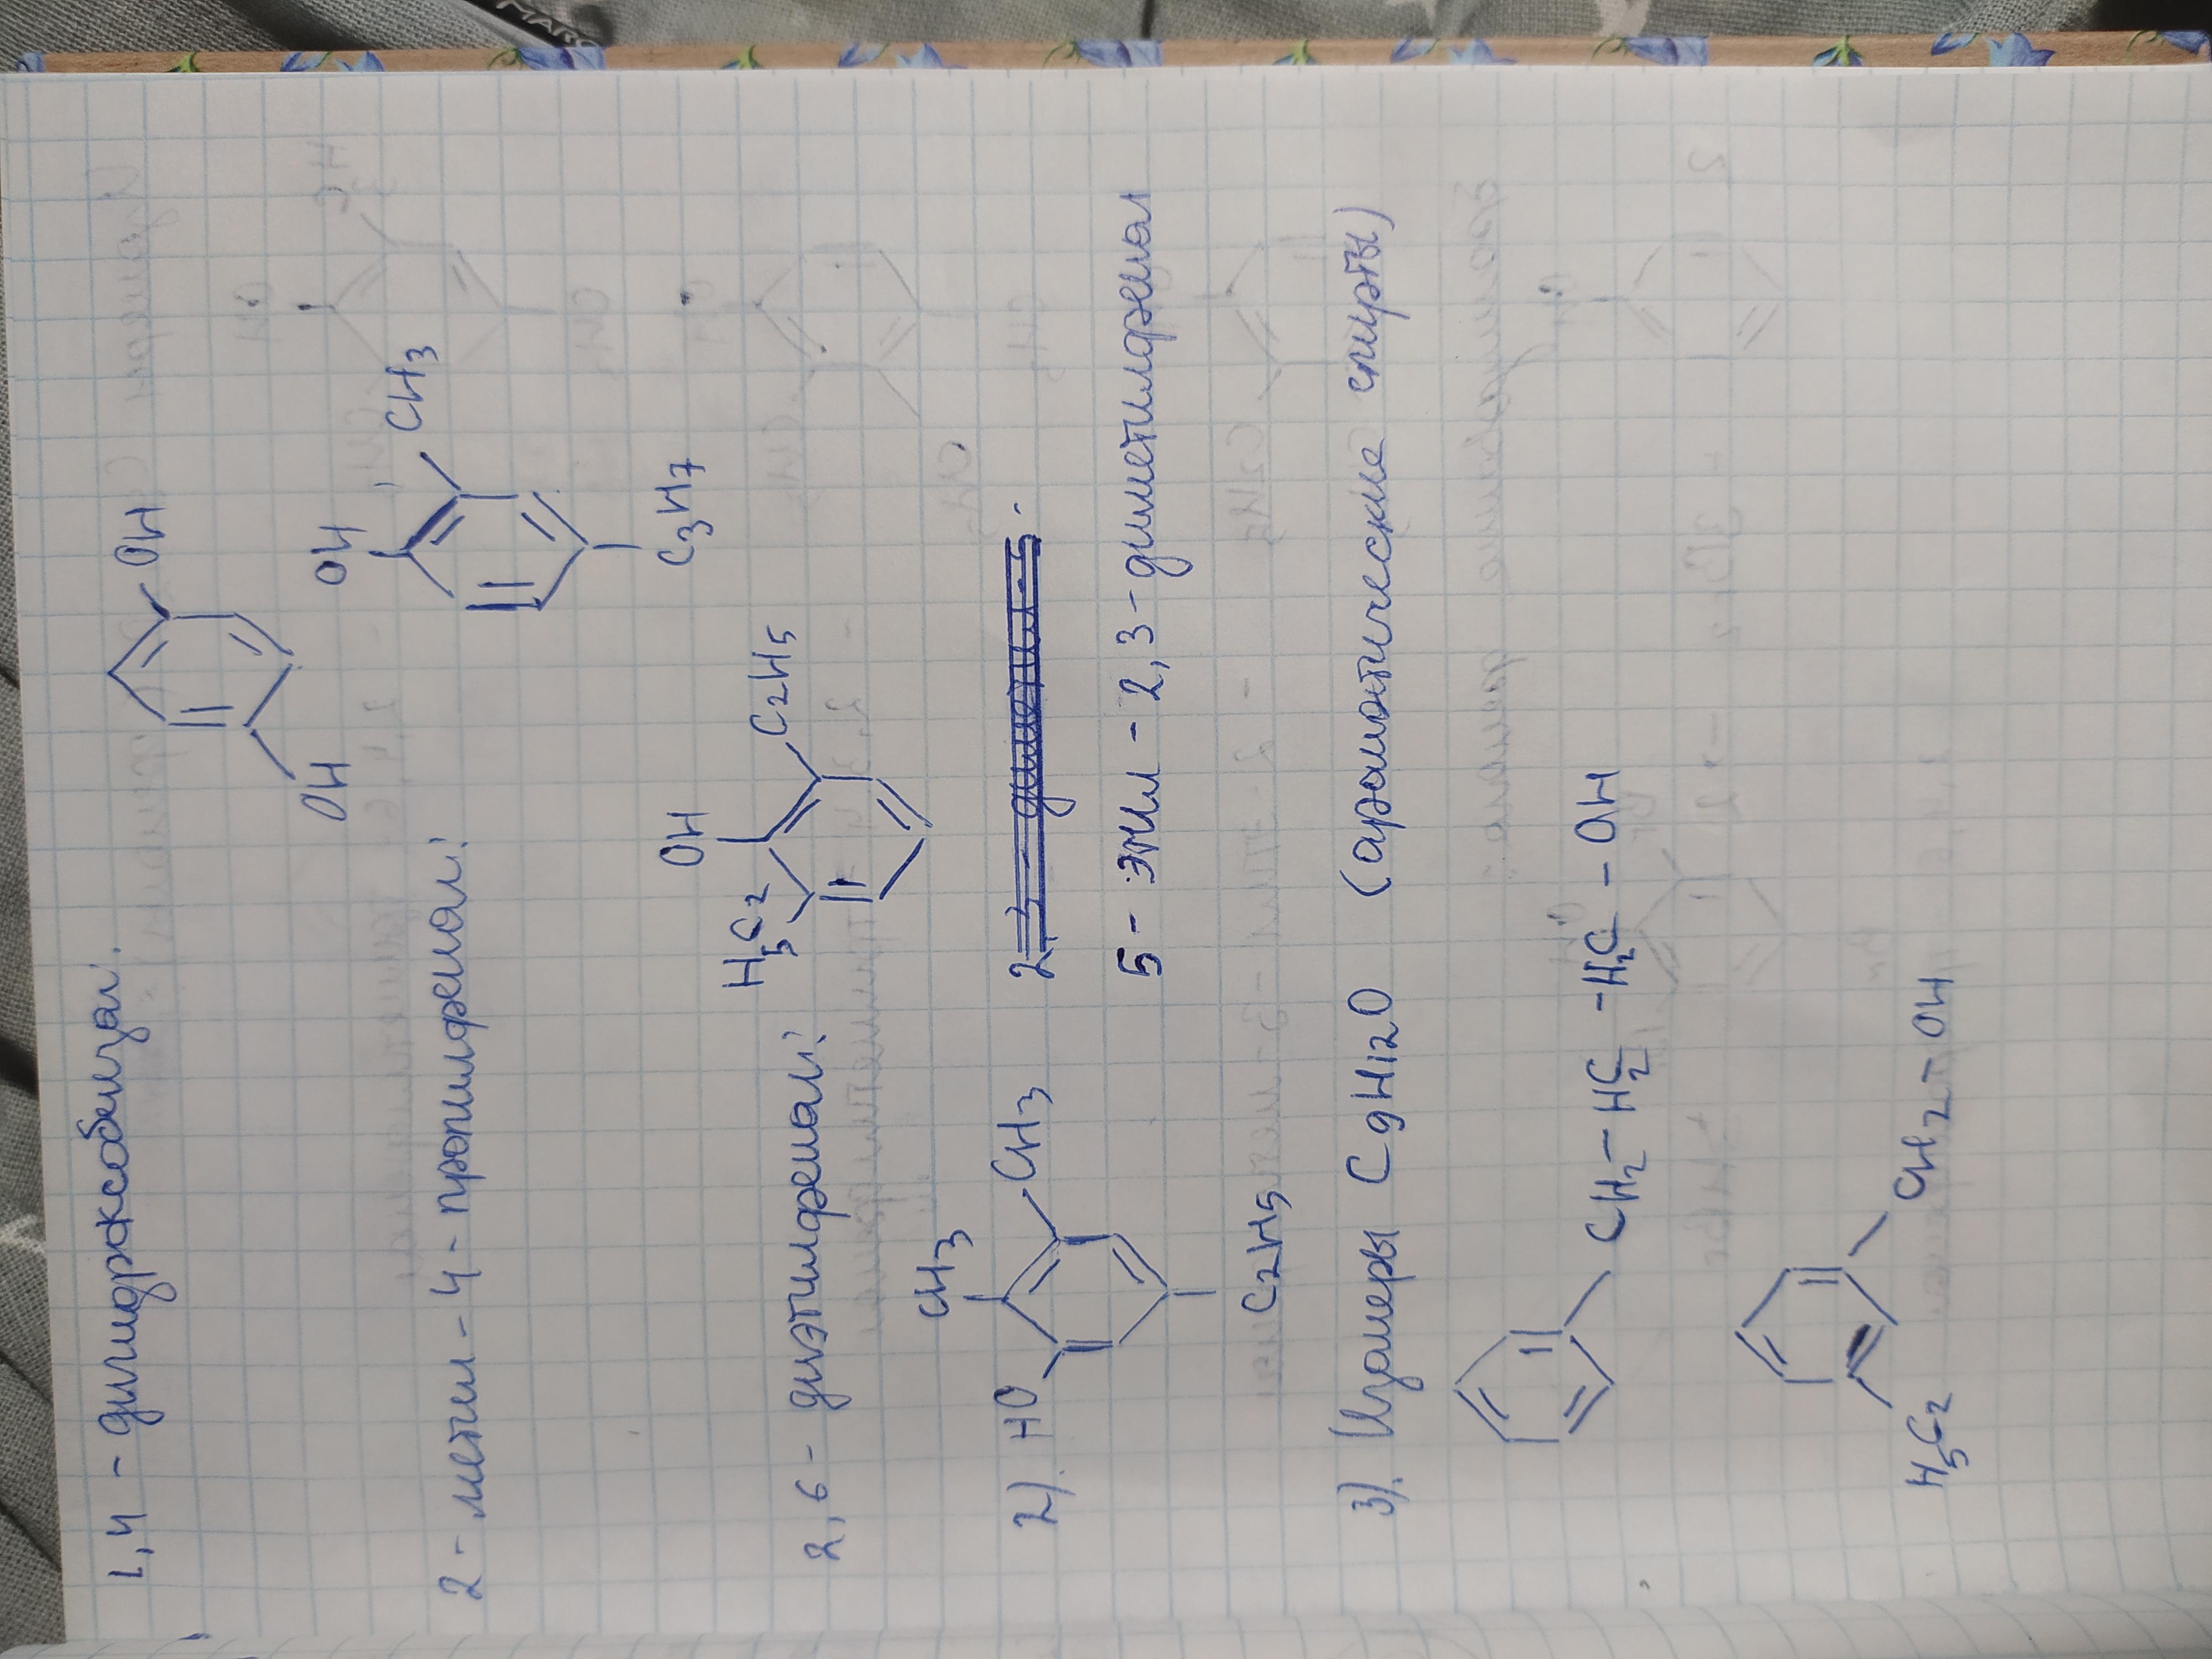 1,4 - дигидроксобензол:
OH
OH
2 - метил - 4 - пропилфенол:
OH
CH3
C3H7
2,6 - диэтилфенол:
OH
H5C2
C2H5
2).
HO
CH3
CH3
C2H5
5 - этил - 2,3 - диметилфенол
3). Изомеры C9H12O (ароматические спирты)
CH2 - H2C - H2C - OH
H5C2
CH2 - OH